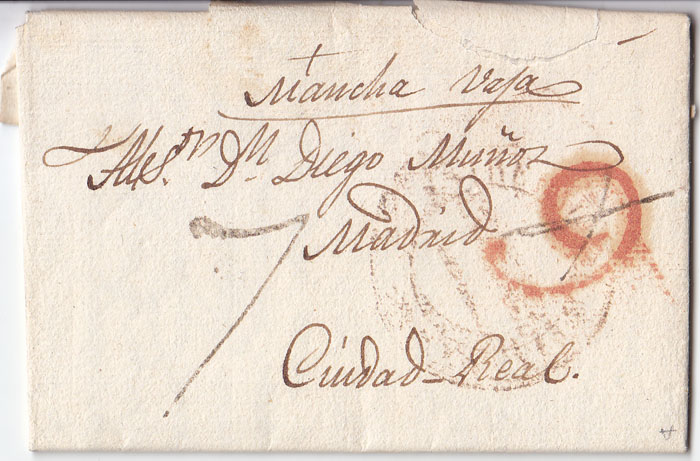 Mancha Vaja
Al Sr. Dn Diego Muñoz
Madrid
7
9
Ciudad-Real.